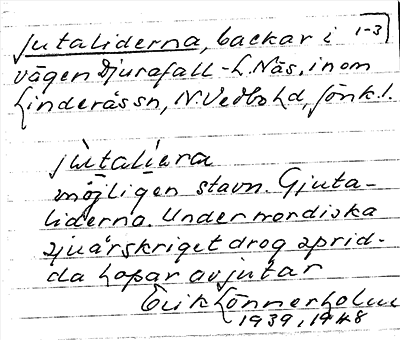 Jutaliderna, backar i 1-3
vägen Djurafall-L. Näs, inom
Linderås sn, N. Vedbo hd, Jönk. l.
jùtalìəra
möjligen stavn. Gjuta-
liderna. Under nordiska
sjuårskriget drog sprid-
da hopar av jutar
Erik Lönnerholm
1939, 1948